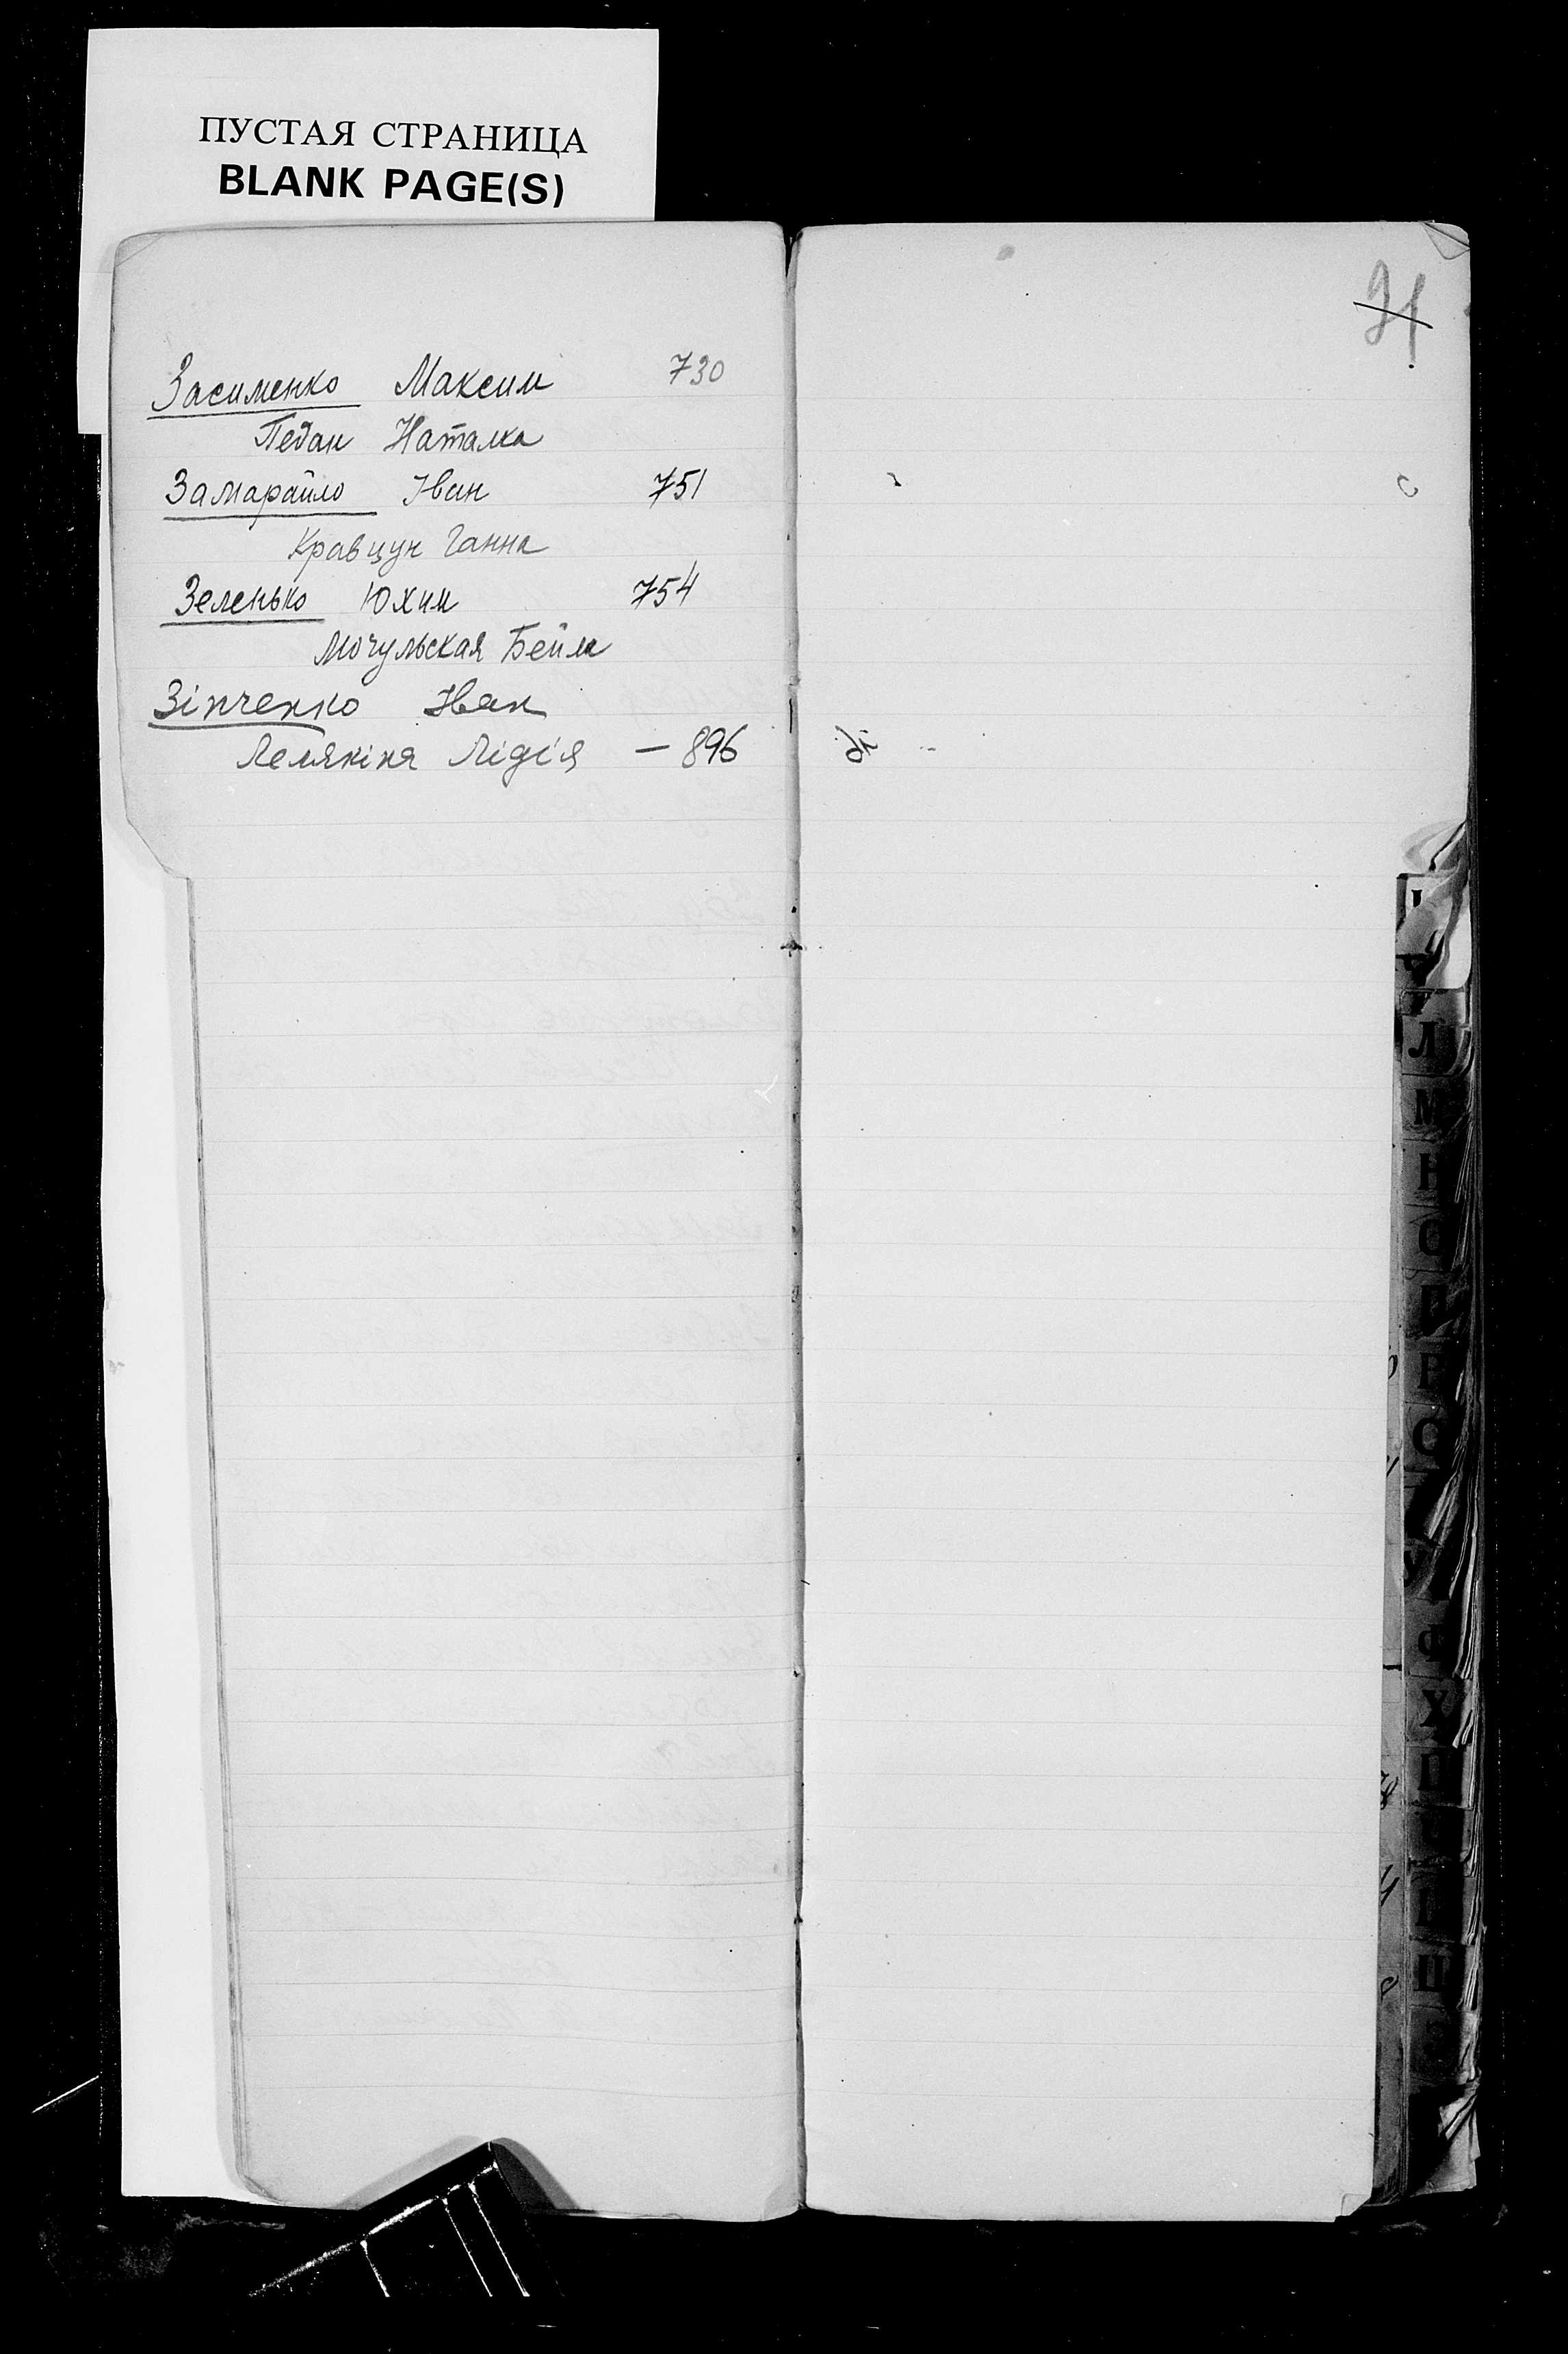 ПУСТАЯ СТРАНИЦА
BLANK PAGE(S)
Засименко Максим 730
Педан Наталка
Замарайло Іван 751
Кравцун Ганна
Зеленько Юхим 754
Мочульская Бейла
Зінченко Іван
Лемякіна Лідія — 896
Л
М
Н
О
П
Р
С
У
Ф
Х
Ц